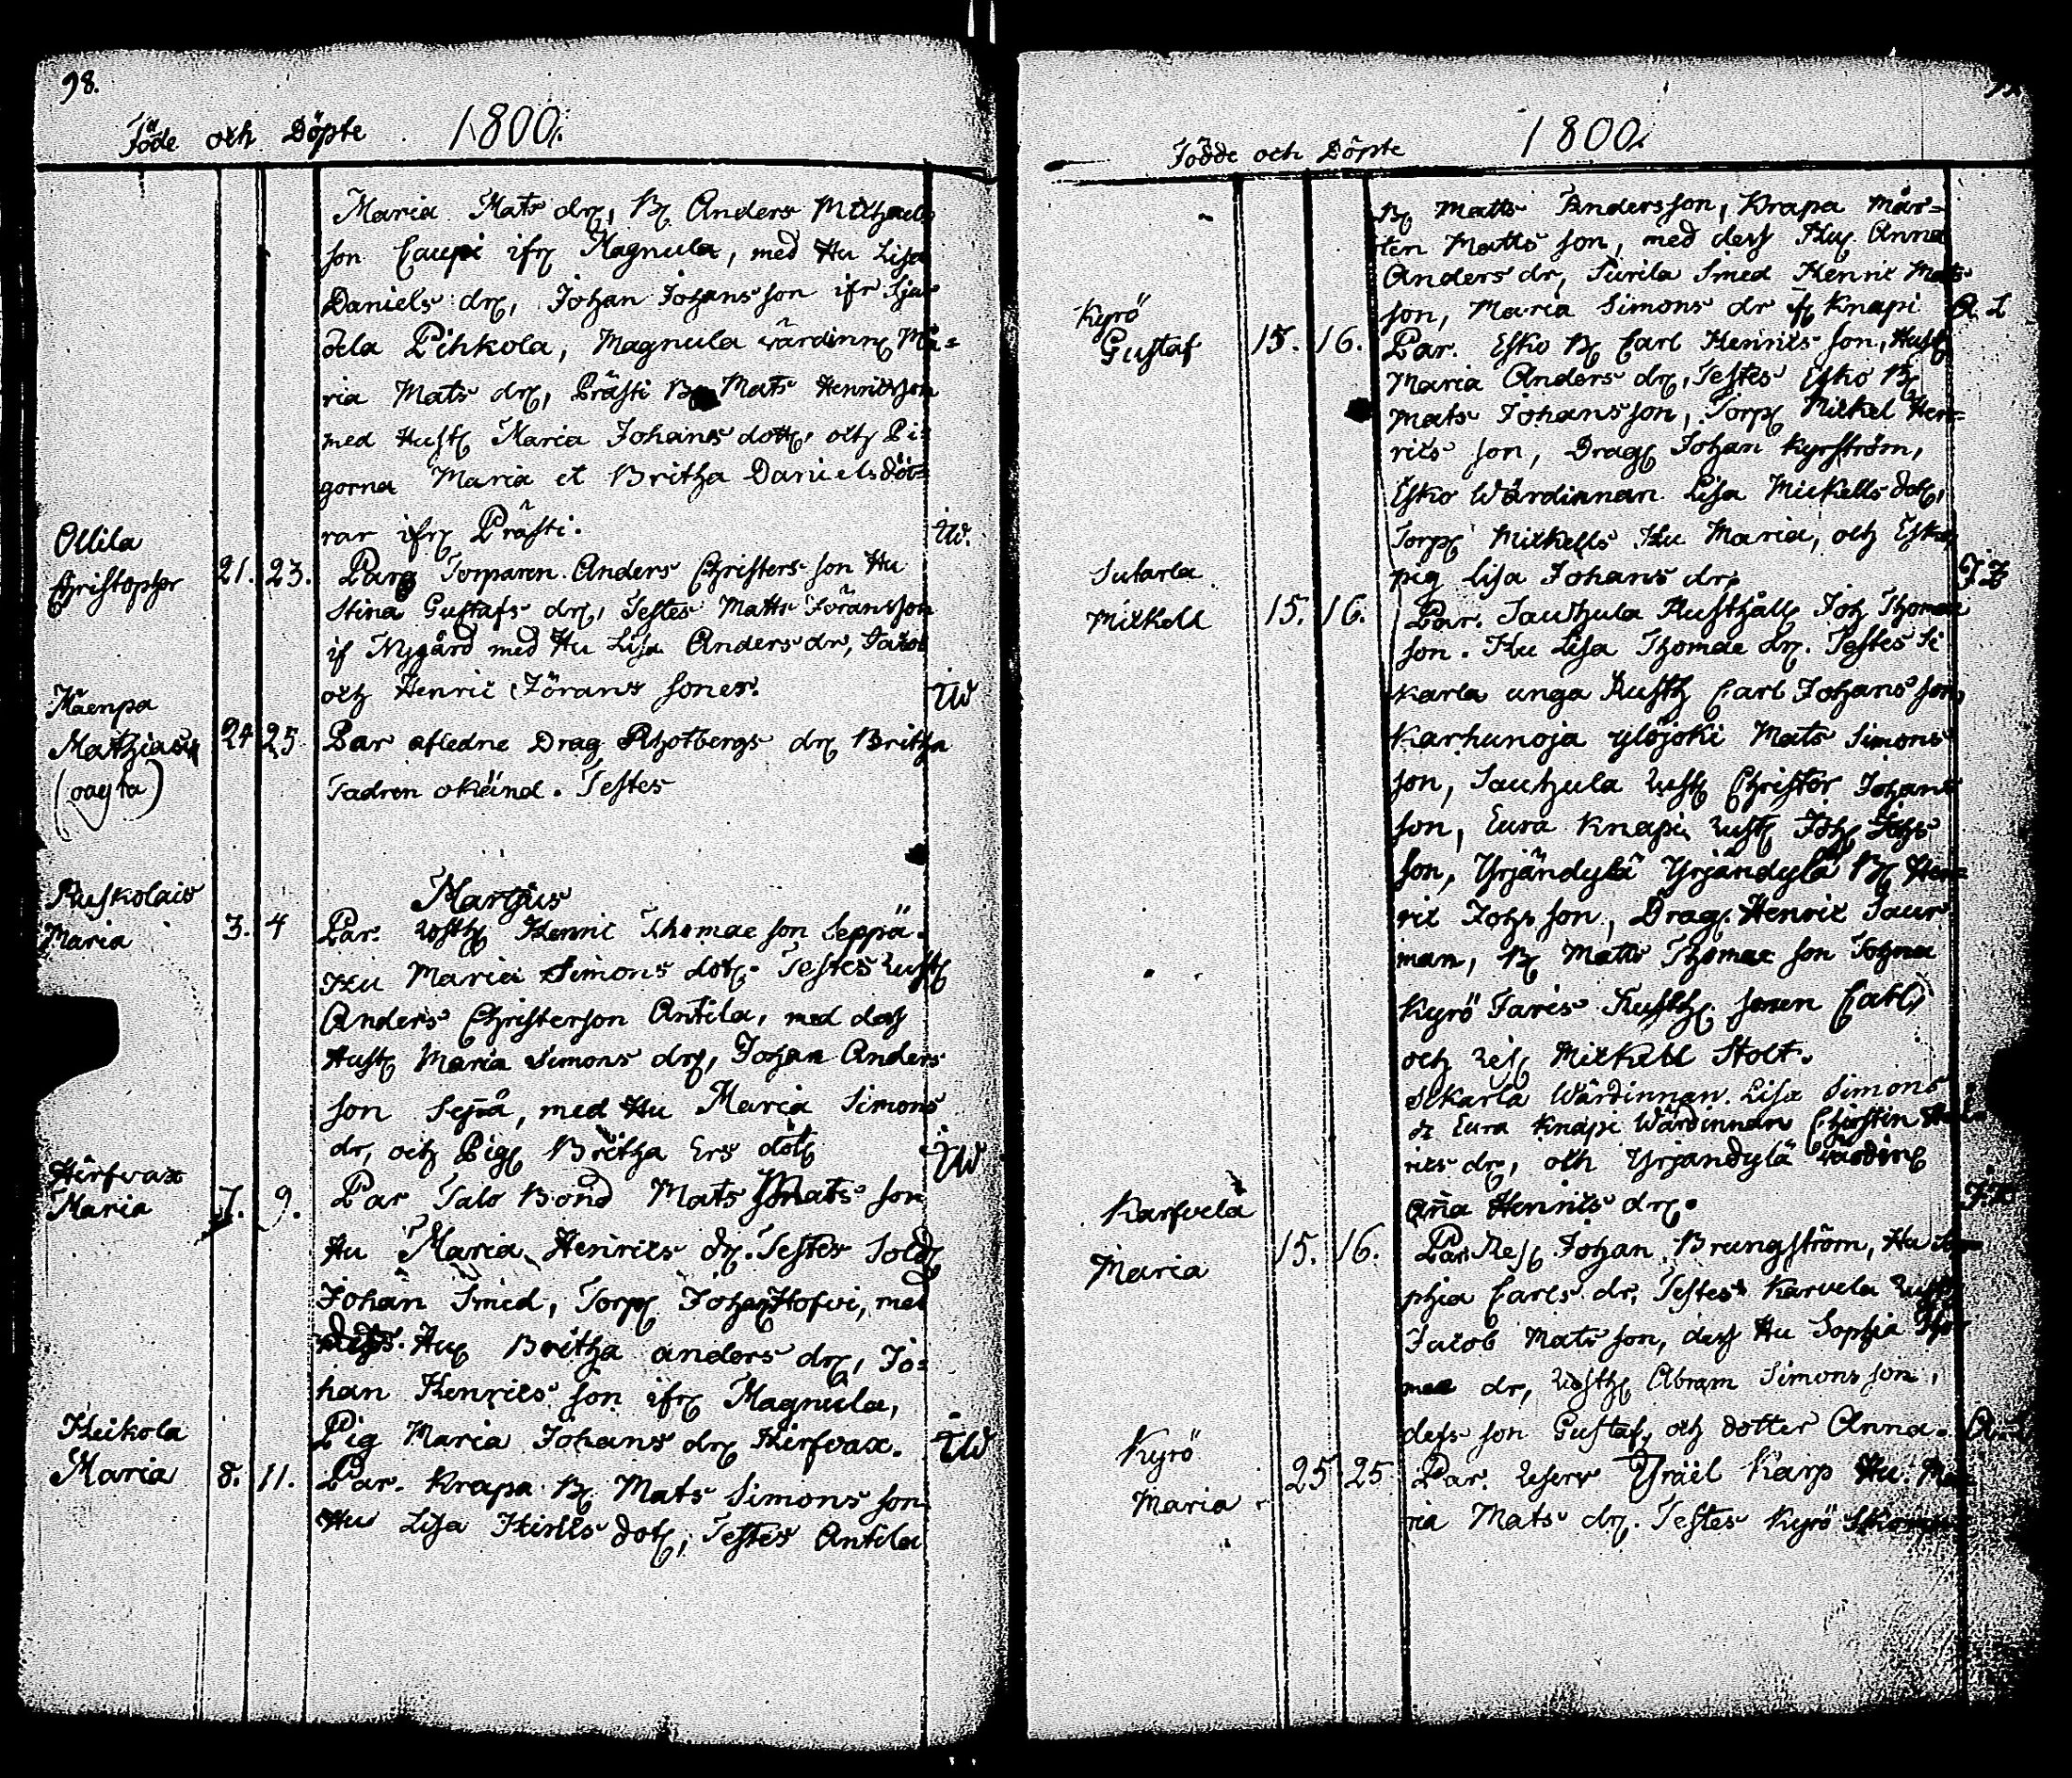 98.
Föde och Döpte 1800.
Maria Mats drͬ, Bͬ Anders Michaels
son Caupi ifrͬ Magnula, med Hu Lisa
Daniels drͬ, Johan Johans son ifr Sju
dela Pihkola, Magnula värdinnͬ Ma=
ria Mats drͬ, Prästi Bͬ Mats Henricsson
med Hustͬ Maria Johans dottͬ, och Pi=
gorna Maria et Britha Daniels döt=
rar ifrͬ Prästi. IW.
Ollila
Christopher 21. 23. Parͬ Torparen Anders Christers son Hu
Stina Gustafs drͬ, Testes Matts Göransson
if Nygård med Hu Lisa Anders dr, Jakob
och Henric Görans söner. IW
Mäenpä
Mathias 24 25 Par afledne Drag Rhotbergs drͬ Britha
(oagta) Fadren okänd. Testes
Martjus
Ruskolais
Maria 3. 4 Par. Rusthͬ Henric Thomae son Seppä.
Hu Maria Simons dotͬ. Testes Rustͬ
Anders Christerson Antila, med dess
Hustͬ Maria Simons drͬ, Johan Anders
son Sepä, med Hu Maria Simons
dr, och Pigͬ Britha Ers dotͬ IW
Hirfvax
Maria 7. 9. Par Talo Bond Mats Mats son
Hu Maria Henrics dͬ. Testes Soldͬ
Johan Smed, Torpͬ Johan Hofvi, med
dess Huͬ Britha anders drͬ, Jo=
han Henrics son ifrͬ Magnula,
Pig Maria Johans drͬ Hirfvax. IW
Heikola
Maria 8. 11. Par. Krapa Bͬ Mats Simons son
Hu Lisa Henrics dotͬ, Testes Antila
Födde och Döpte 1800
Bͬ Matts Andersson, Krapa Mår=
ten Matts son, med dess Huͬ Anna
Anders dr, Surila Smed Henric Mats
son, Maria Simons dr if Knapi A. L
Kyrö
Gustaf 15. 16. Par. Esko Bͬ Carl Henrics son, Hustͬ
Maria Anders drͬ, Testes Esko Bͬ
Mats Johansson, Torpͬ Mickel Hen=
rics son, Dragͬ Johan Kyrström,
Esko Wärdinnan Lisa Mickells dotͬ,
Torpͬ Mickells Hu Maria, och Esko
pig Lisa Johans drͬ.
Sukarla
Mickell 15. 16. Par. Sauhula Rusthållͬ Joh Thomae
son. Hu Lisa Thomae drͬ. Testes Si
karla unga Rusth Carl Johans son,
Karhunoja ylöjoki Mats Simons
son, Sauhula Rustͬ Christer Johans
son, Eura Knapi Rustͬ Johͬ Johs
son, Yrjändylä Yrjändylä Bͬ Hen=
ric Johs son, Dragͬ Henric Saur
man, Bͬ Matts Thomae son Johna
Kyrö Jaris Rusthͬ sonen Carl,
och Resͬ Mickell Stolt.
Sikarla Wärdinnan Lisa Simons
dͬ Eura Knapi Wärdinnan Christin Hen
rics drͬ, och Yrjandylä värdinͬ
Aña Henrics drͬ.
Karfvela
Maria 15. 16. Par. Resͬ Johan Brungström, Hu So
phia Carls dr, Testes Karvela Rustͬ
Jacob Mats son, dess Hu Sophia Tho
mae dr, Rusthͬ Abram Simons son,
dess son Gustaf, och dotter Anna.
Kyrö
Maria 25 25 Par. Reserv Ysräel Karp Hu. Ma
ria Mats drͬ. Testes Kyrö